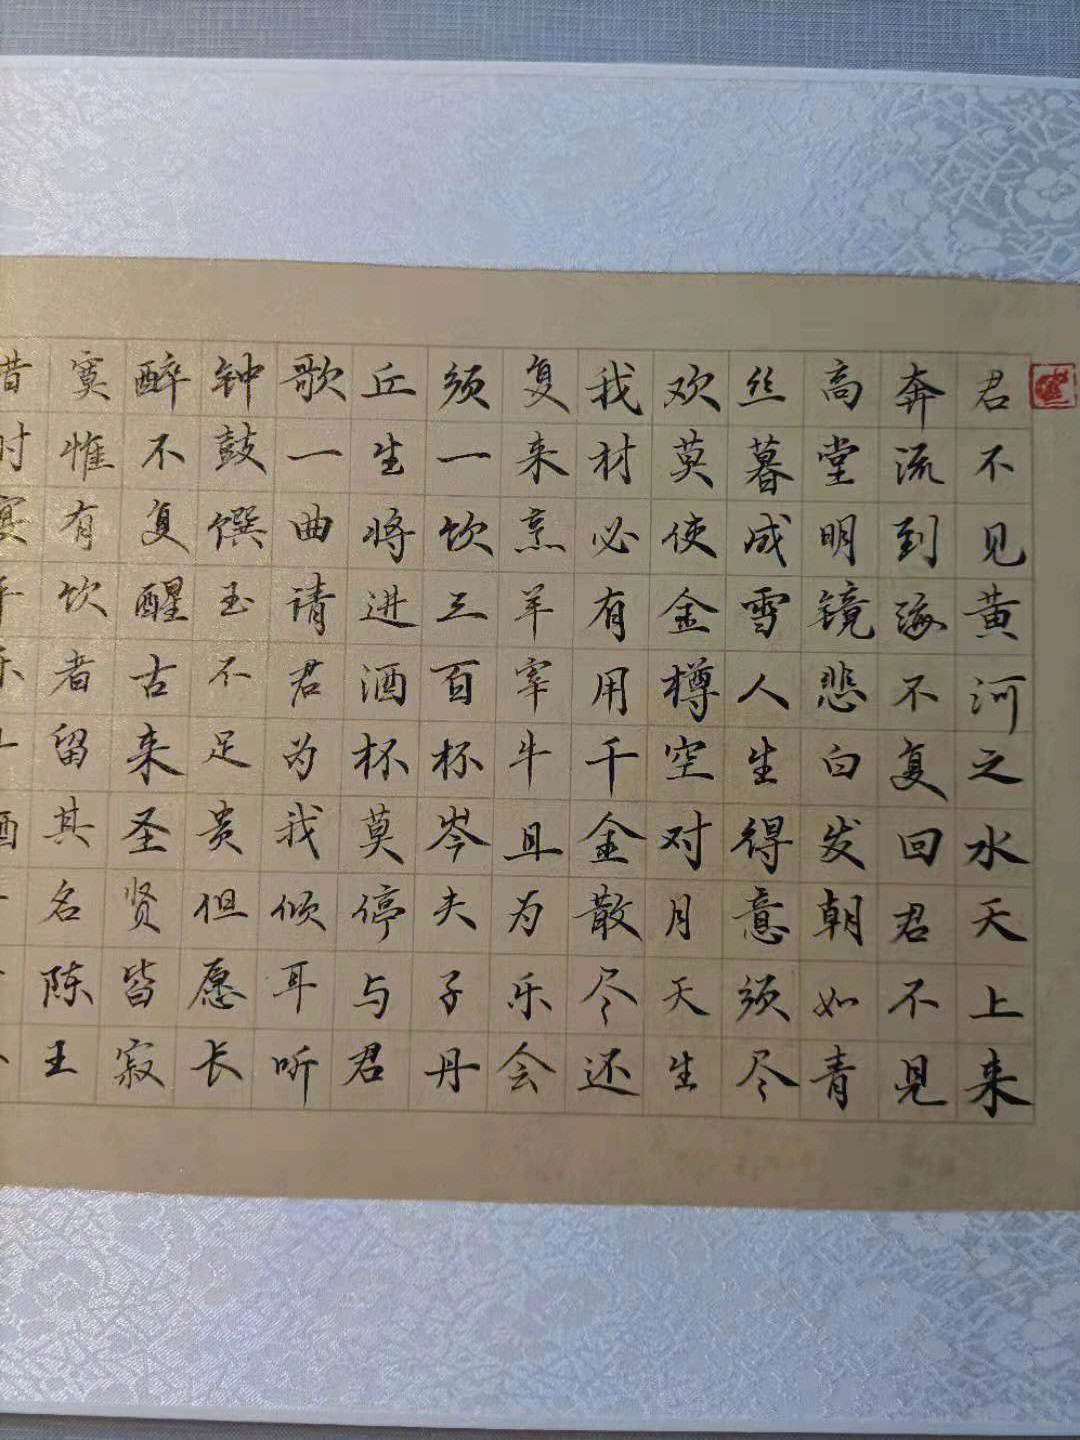 君不见黄河之水天上来
奔流到海不复回君不见
高堂明镜悲白发朝如青
丝暮成雪人生得意须尽
欢莫使金樽空对月天生
我材必有用千金散尽还
复来烹羊宰牛且为乐会
须一饮三百杯岑夫子丹
丘生将进酒杯莫停与君
歌一曲请君为我倾耳听
钟鼓馔玉不足贵但愿长
醉不复醒古来圣贤皆寂
寞惟有饮者留其名陈王
昔时宴